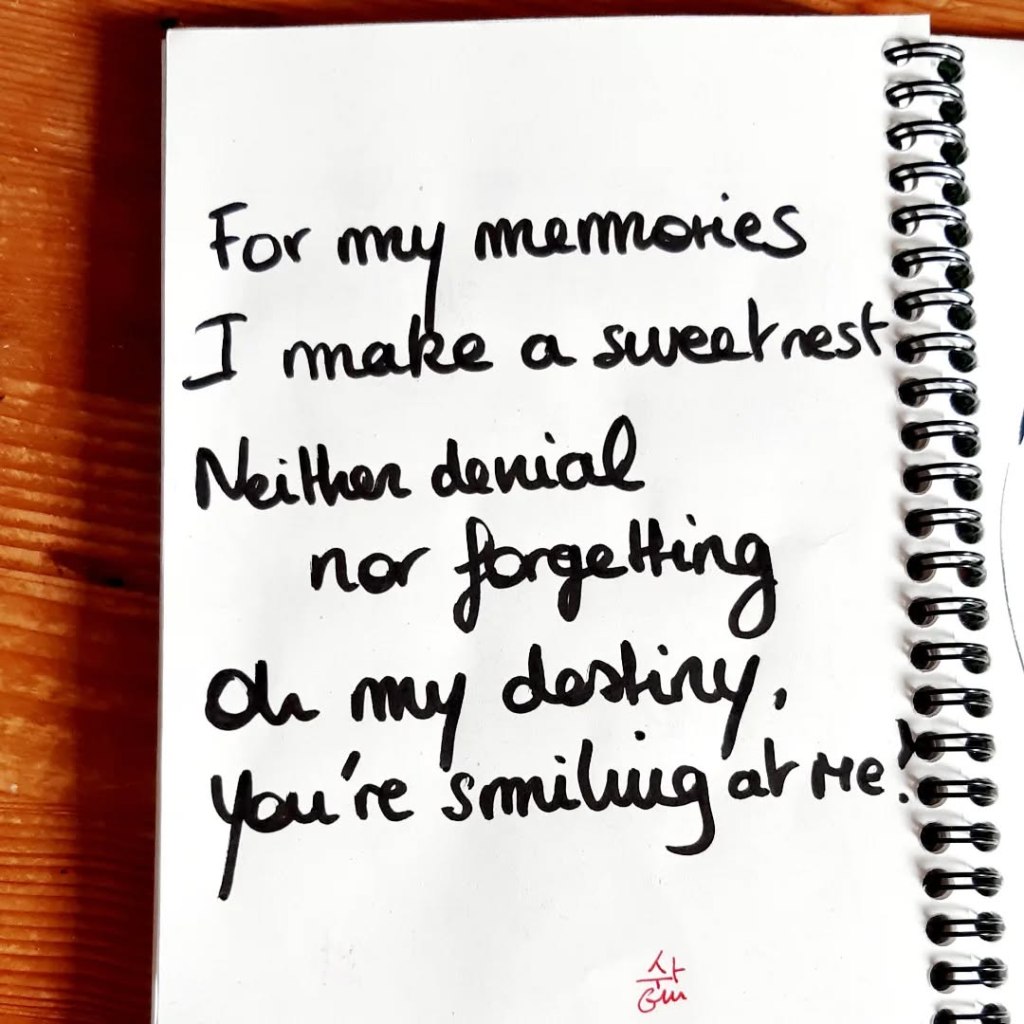 For my memories
I make a sweet nest
Neither denial
nor forgetting
Oh my destiny,
You're smiling at me!